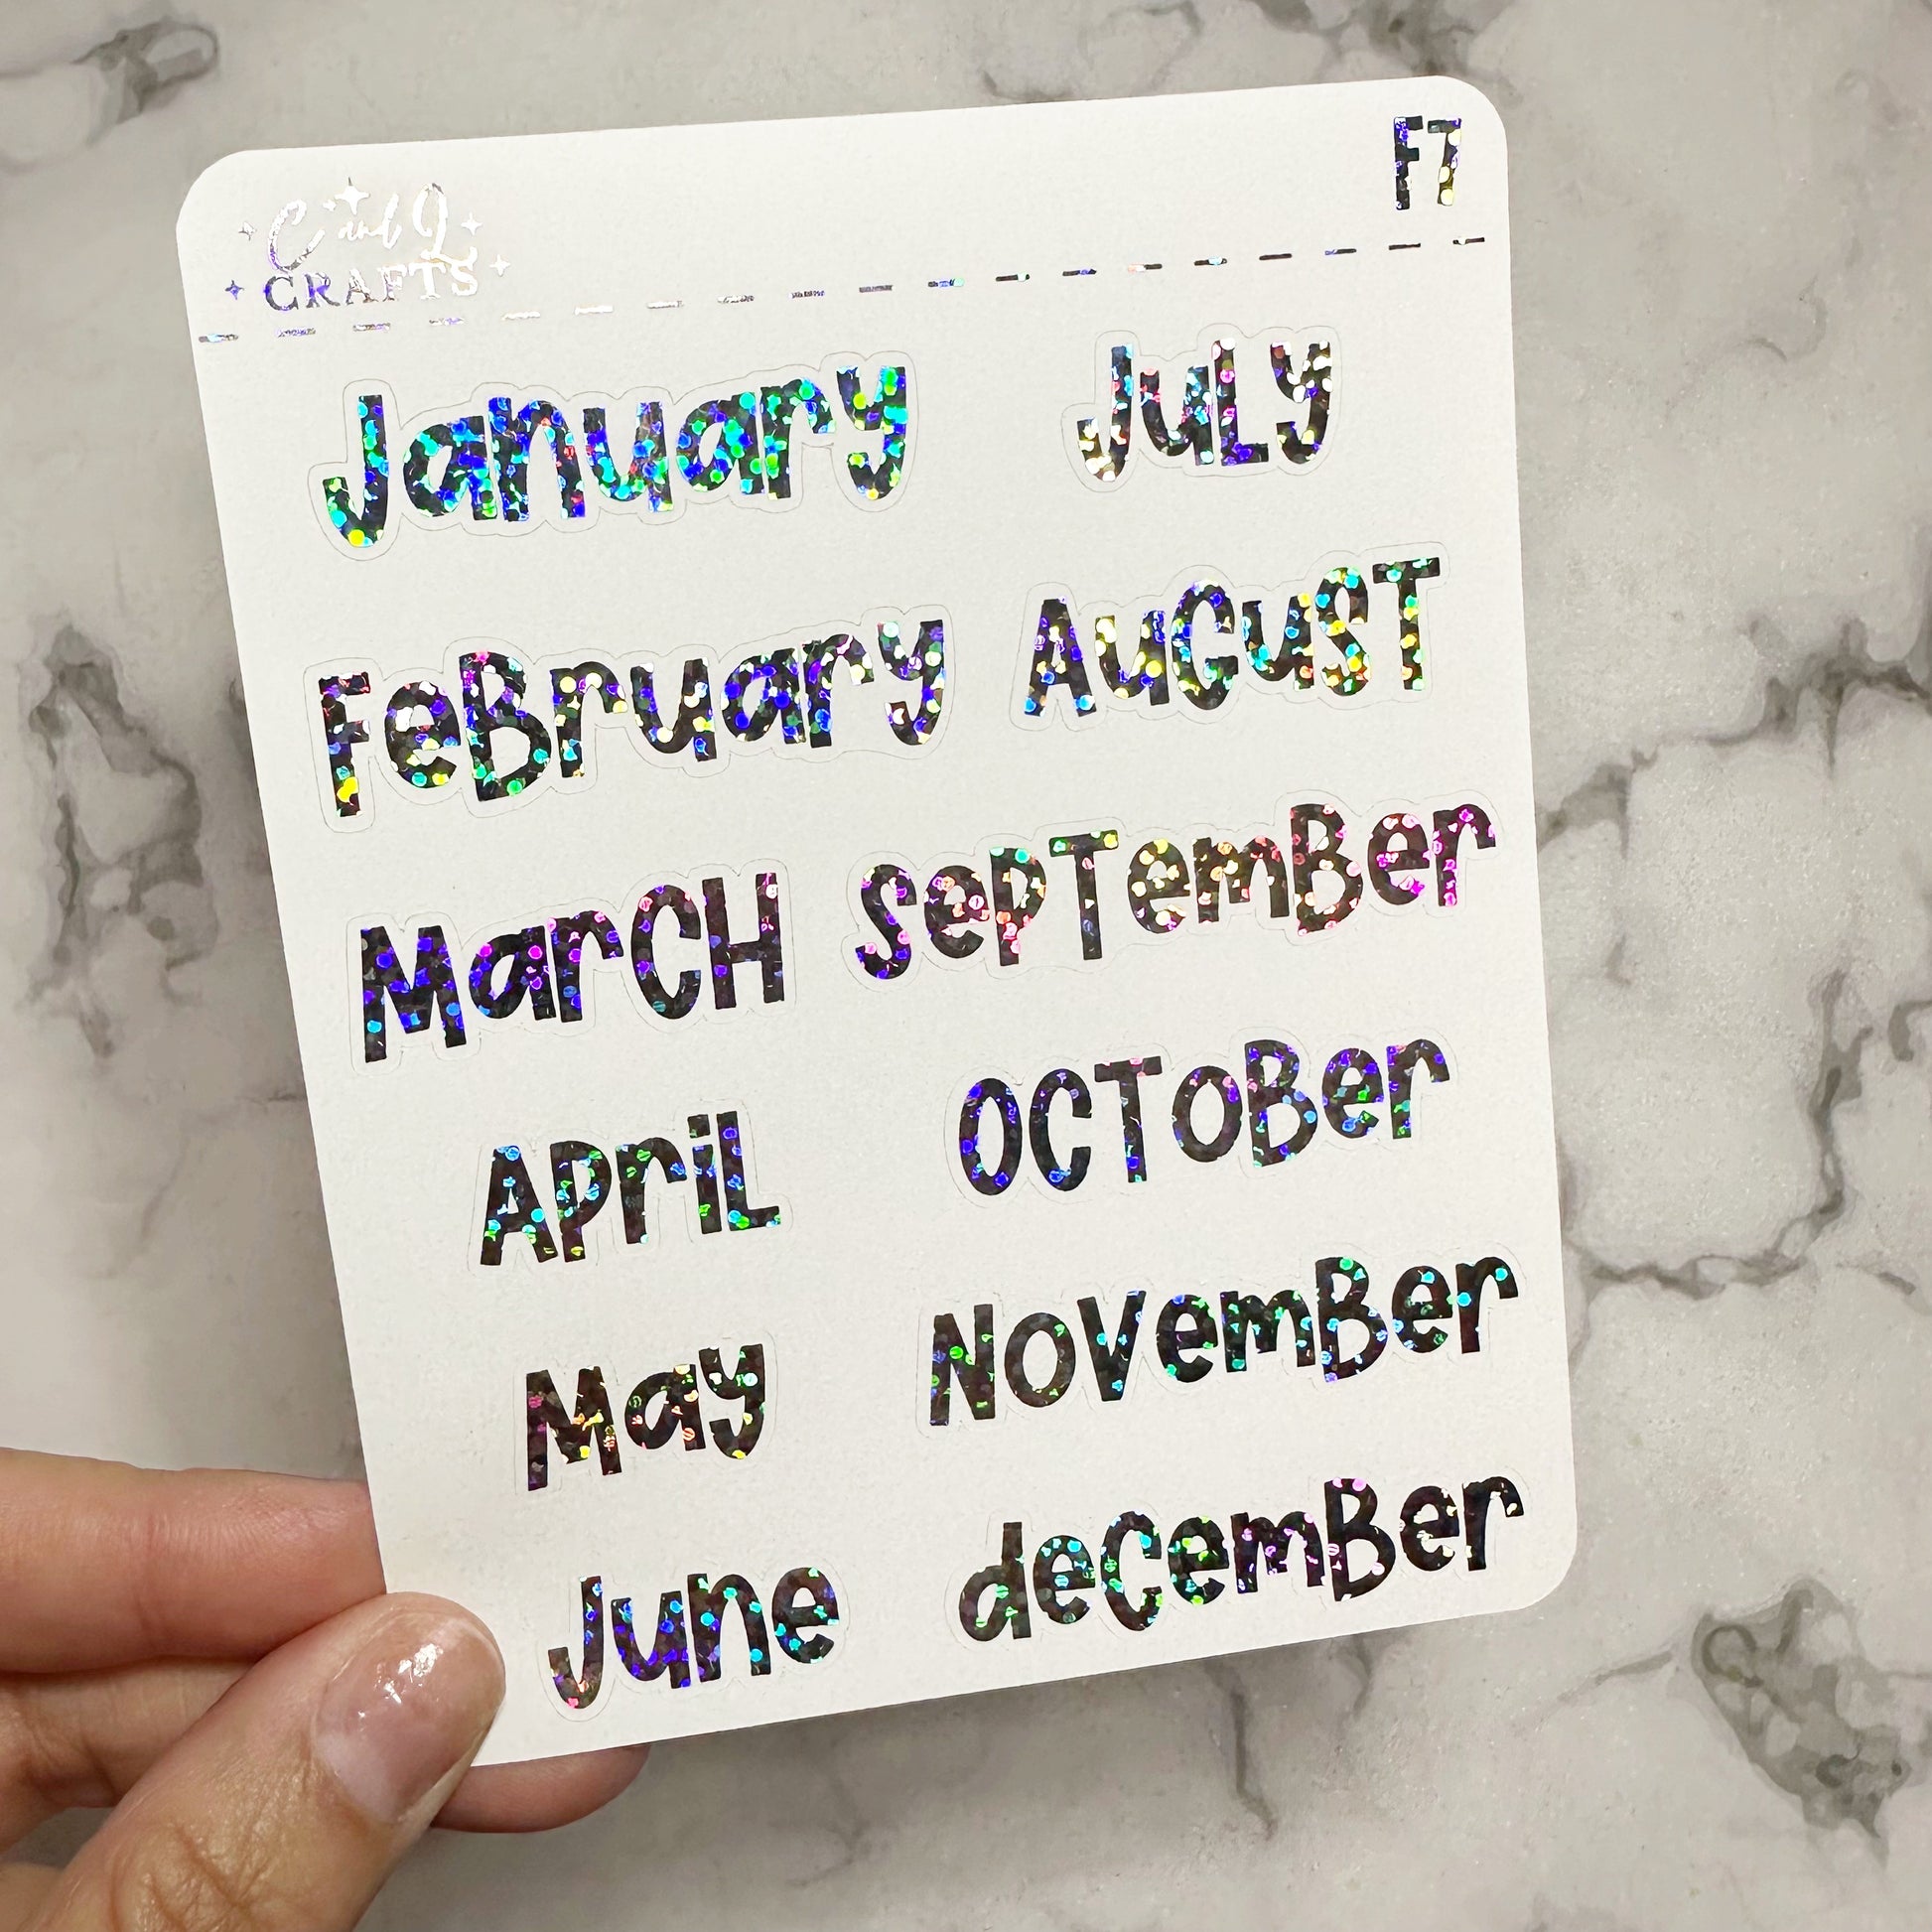 C and Q
CRAFTS
F7
January
FeBruary
MarCH
APriL
May
June
JuLy
AuGuST
sePTemBer
OCToBer
NoVemBer
deCemBer